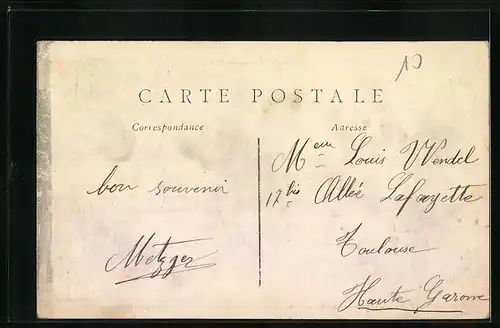 10
CARTE POSTALE
Correspondance
Adresse
bon souvenir
Metzger
Meur Louis Wendel
12 bis Allée Lafayette
Toulouse
Haute Garonne